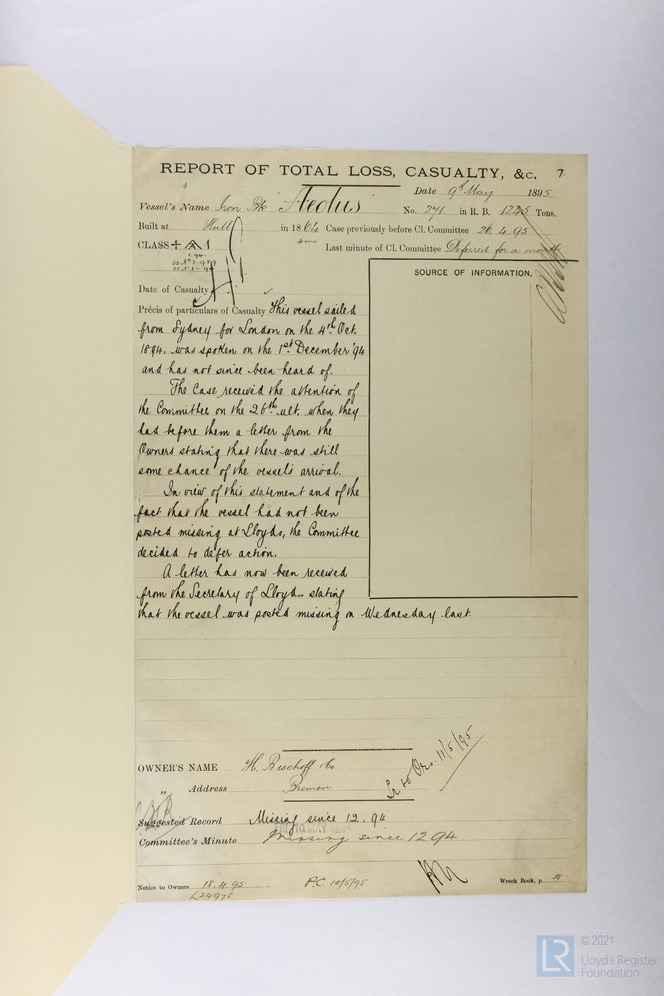 REPORT OF TOTAL LOSS, CASUALTY, &c. 7
Date 9th May 1895
Vessel's Name Iron Bk
No. 241 in R. B. 1225 Tons,
Built at Hull in 1864 Case previously before Cl. Committee 26.4.95
CLASS Last minute of Cl. Committee Deferred for a month
SOURCE OF INFORMATION.
Date of Casualty
Précis of particulars of Casualty This vessel sailed
from Sydney for London on the 4th Oct.
1894, was spoken on the 1st December '94
and has not since been heard of.
The Case received the attention of
the Committee on the 26th ult. when they
had before them a letter from the
Owners stating that there was still
some chance of the vessel's arrival.
In view of this statement and of the
fact that the vessel had not been
posted missing at Lloyds, the Committee
decided to defer action.
A letter has now been received
from the Secretary of Lloyds stating
that the vessel was posted missing on Wednesday last.
OWNER'S NAME H. Bischoff & Co
„ Address Bremen
11/5/95
Suggested Record Missing since 12.94
Committee's Minute Missing since 12 94
Notice to Owners 18.4.95
P.C. 10/5/95
Wreck Book, p.
© 2021
LR
Lloyd's Register
Foundation